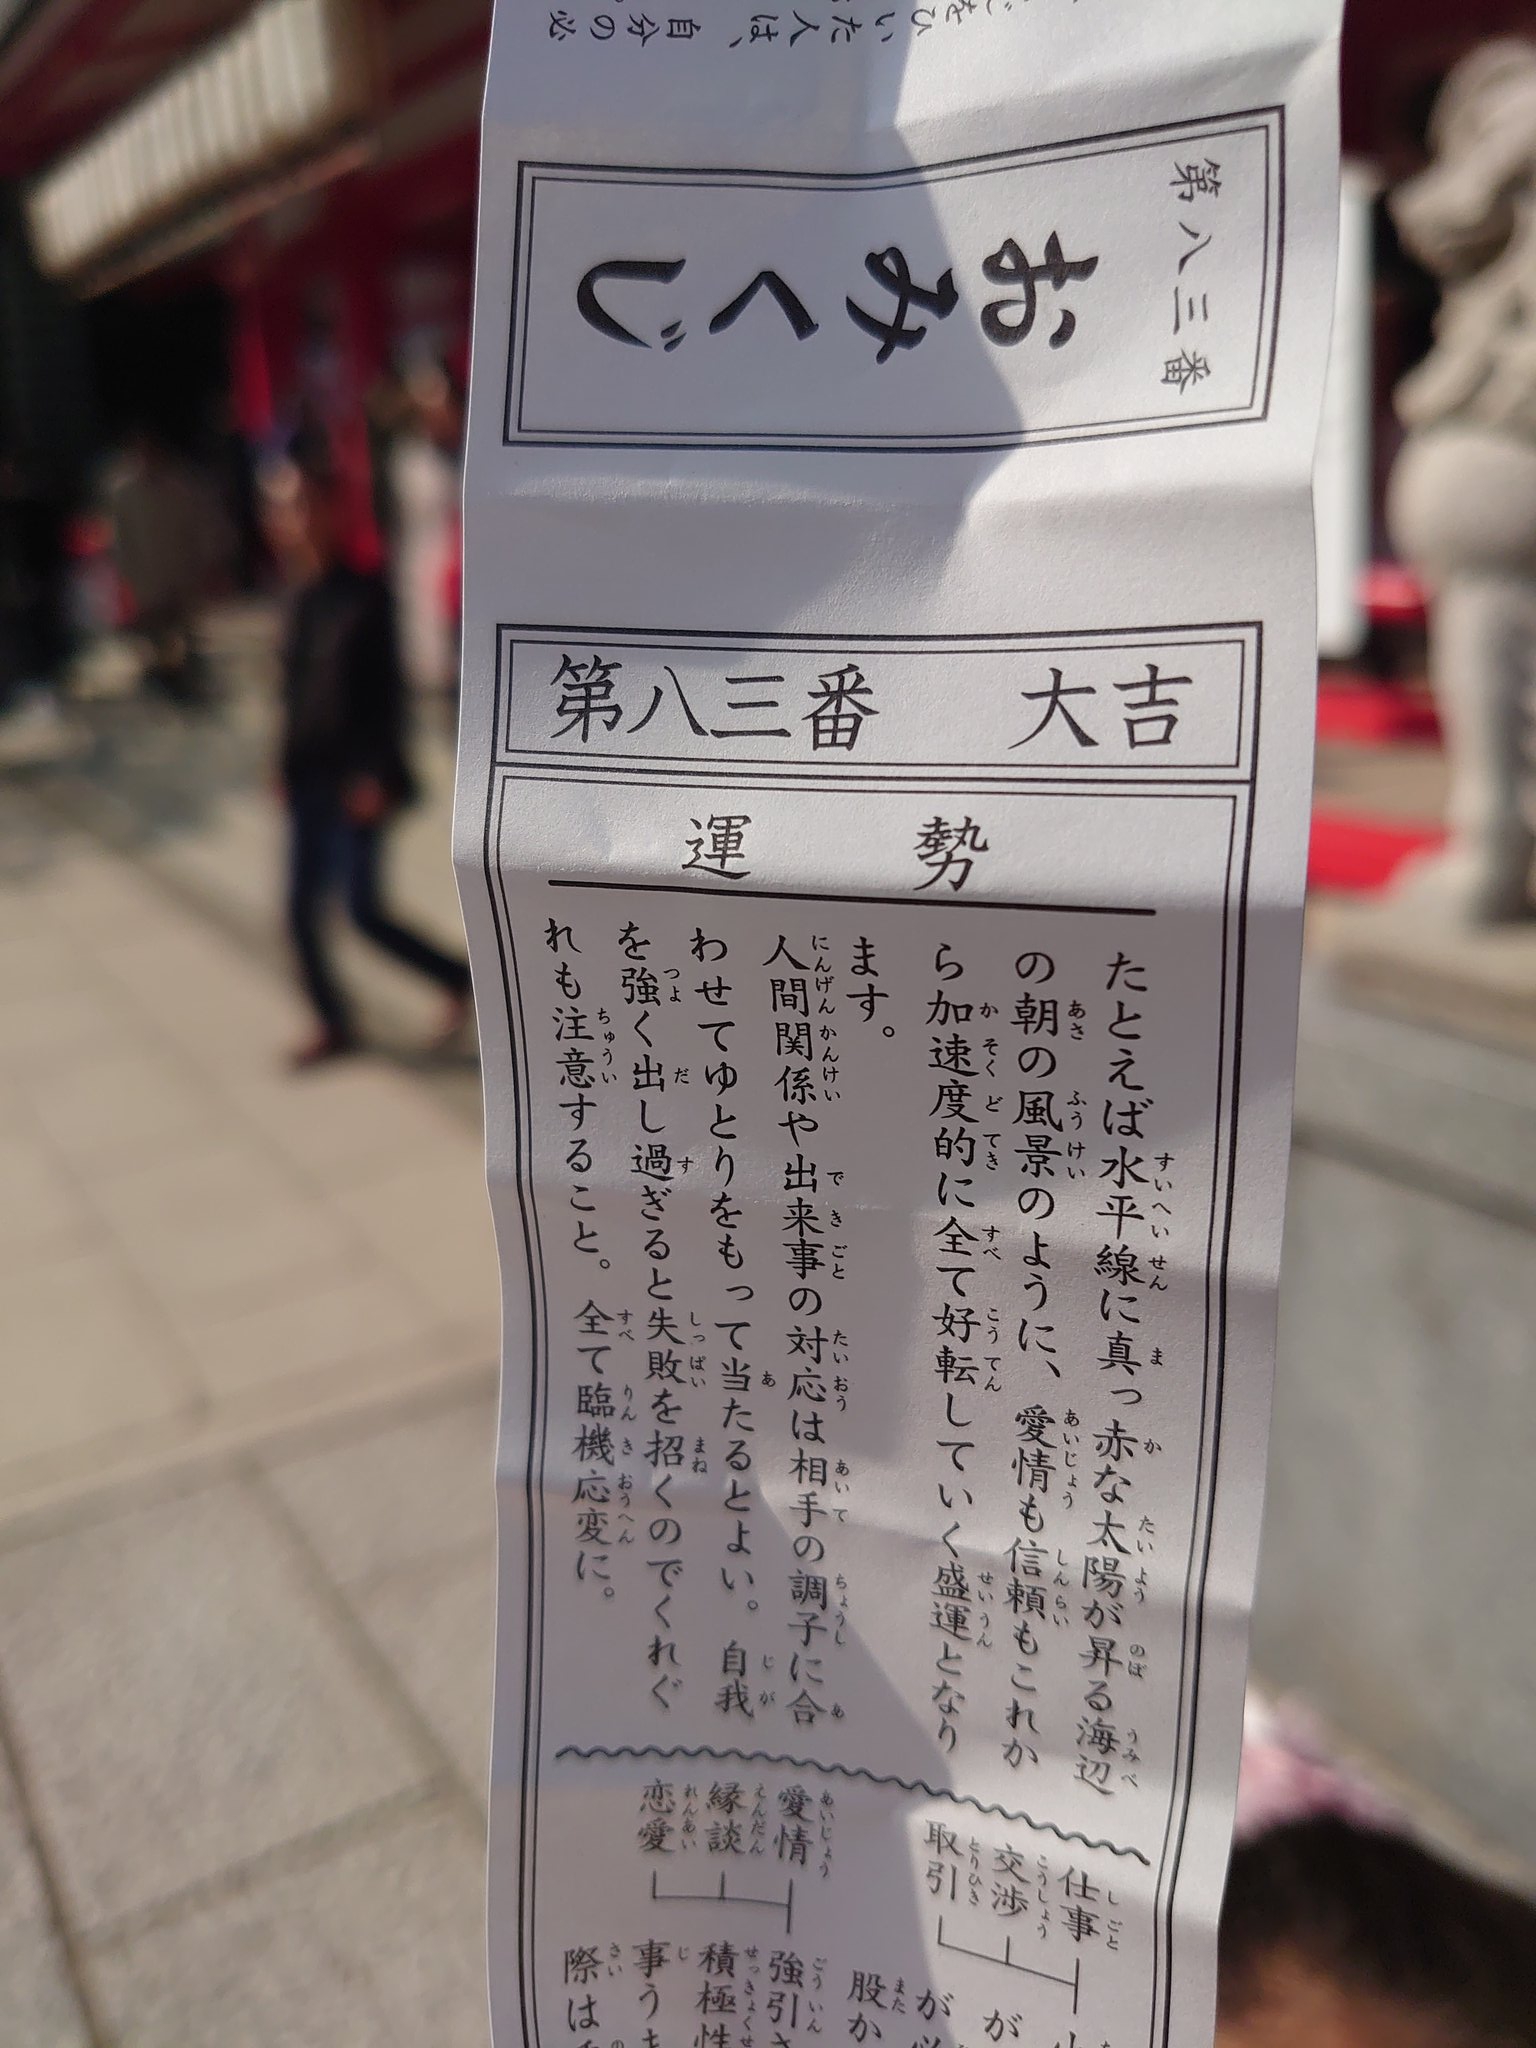 いた人は、自分の必
第八三番
おみくじ
第八三番 大吉
運勢
たとえば水平線に真っ赤な太陽が昇る海辺
の朝の風景のように、愛情も信頼もこれか
ら加速度的に全て好転していく盛運となり
ます。
人間関係や出来事の対応は相手の調子に合
わせてゆとりをもって当たるとよい。自我
を強く出し過ぎると失敗を招くのでくれぐ
れも注意すること。全て臨機応変に。
仕事
交渉
取引
が
が
股か
愛情
縁談
恋愛
強引
積極性
事う
際は